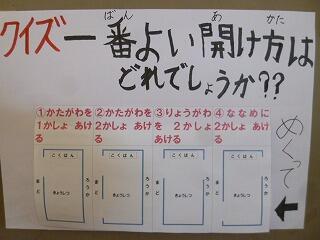 クイズ一番よい開け方は
ばん
あ
かた
どれでしょうか??
①かたがわを
1かしょ あけ
る
②かたがわを
2かしょ あけ
る
③りょうがわ
を 2かしょ
あける
④ななめに
2かしょ あけ
る
めくって
こくばん
まど
きょうしつ
ろうか
こくばん
まど
きょうしつ
ろうか
こくばん
まど
きょうしつ
ろうか
こくばん
まど
きょうしつ
ろうか